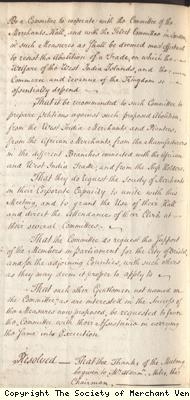 Be a Committee to cooperate with the Committee of the
Merchants Hall, and with the Select Committee in London
in such Measures as shall be deemed most expedient
to resist the Abolition of a Trade, on which the
Welfare of the West India Islands, and the
Commerce and Revenue of the Kingdom so
essentially depend
That it be recommended to such Committee to
prepare petitions against such proposed Abolition,
from the West India Merchants and Planters,
from the African Merchants, from the Manufacturers
in the different Branches connected with the African
and West India Trade, and from the Ship Holders.
That they do request the Society of Merchants
in their Corporate Capacity to unite with this
Meeting, and to grant the Use of their Hall
and direct the Attendance of their Clerk at
their several Committees.
That the Committee do request the Support
of the Members in Parliament for the City of Bristol,
and for the adjoining Counties, with such others
as they may deem it proper to apply to
That such other Gentlemen not named on
the Committee, as are interested in the Success of
the Measures now proposed, be requested to favor
the Committee with their Assistance in carrying
the same into Execution
Resolved That the Thanks of the Meeting
be given to Mr Alderman Miles, the
Chairman
Copyright The Society of Merchant Ven